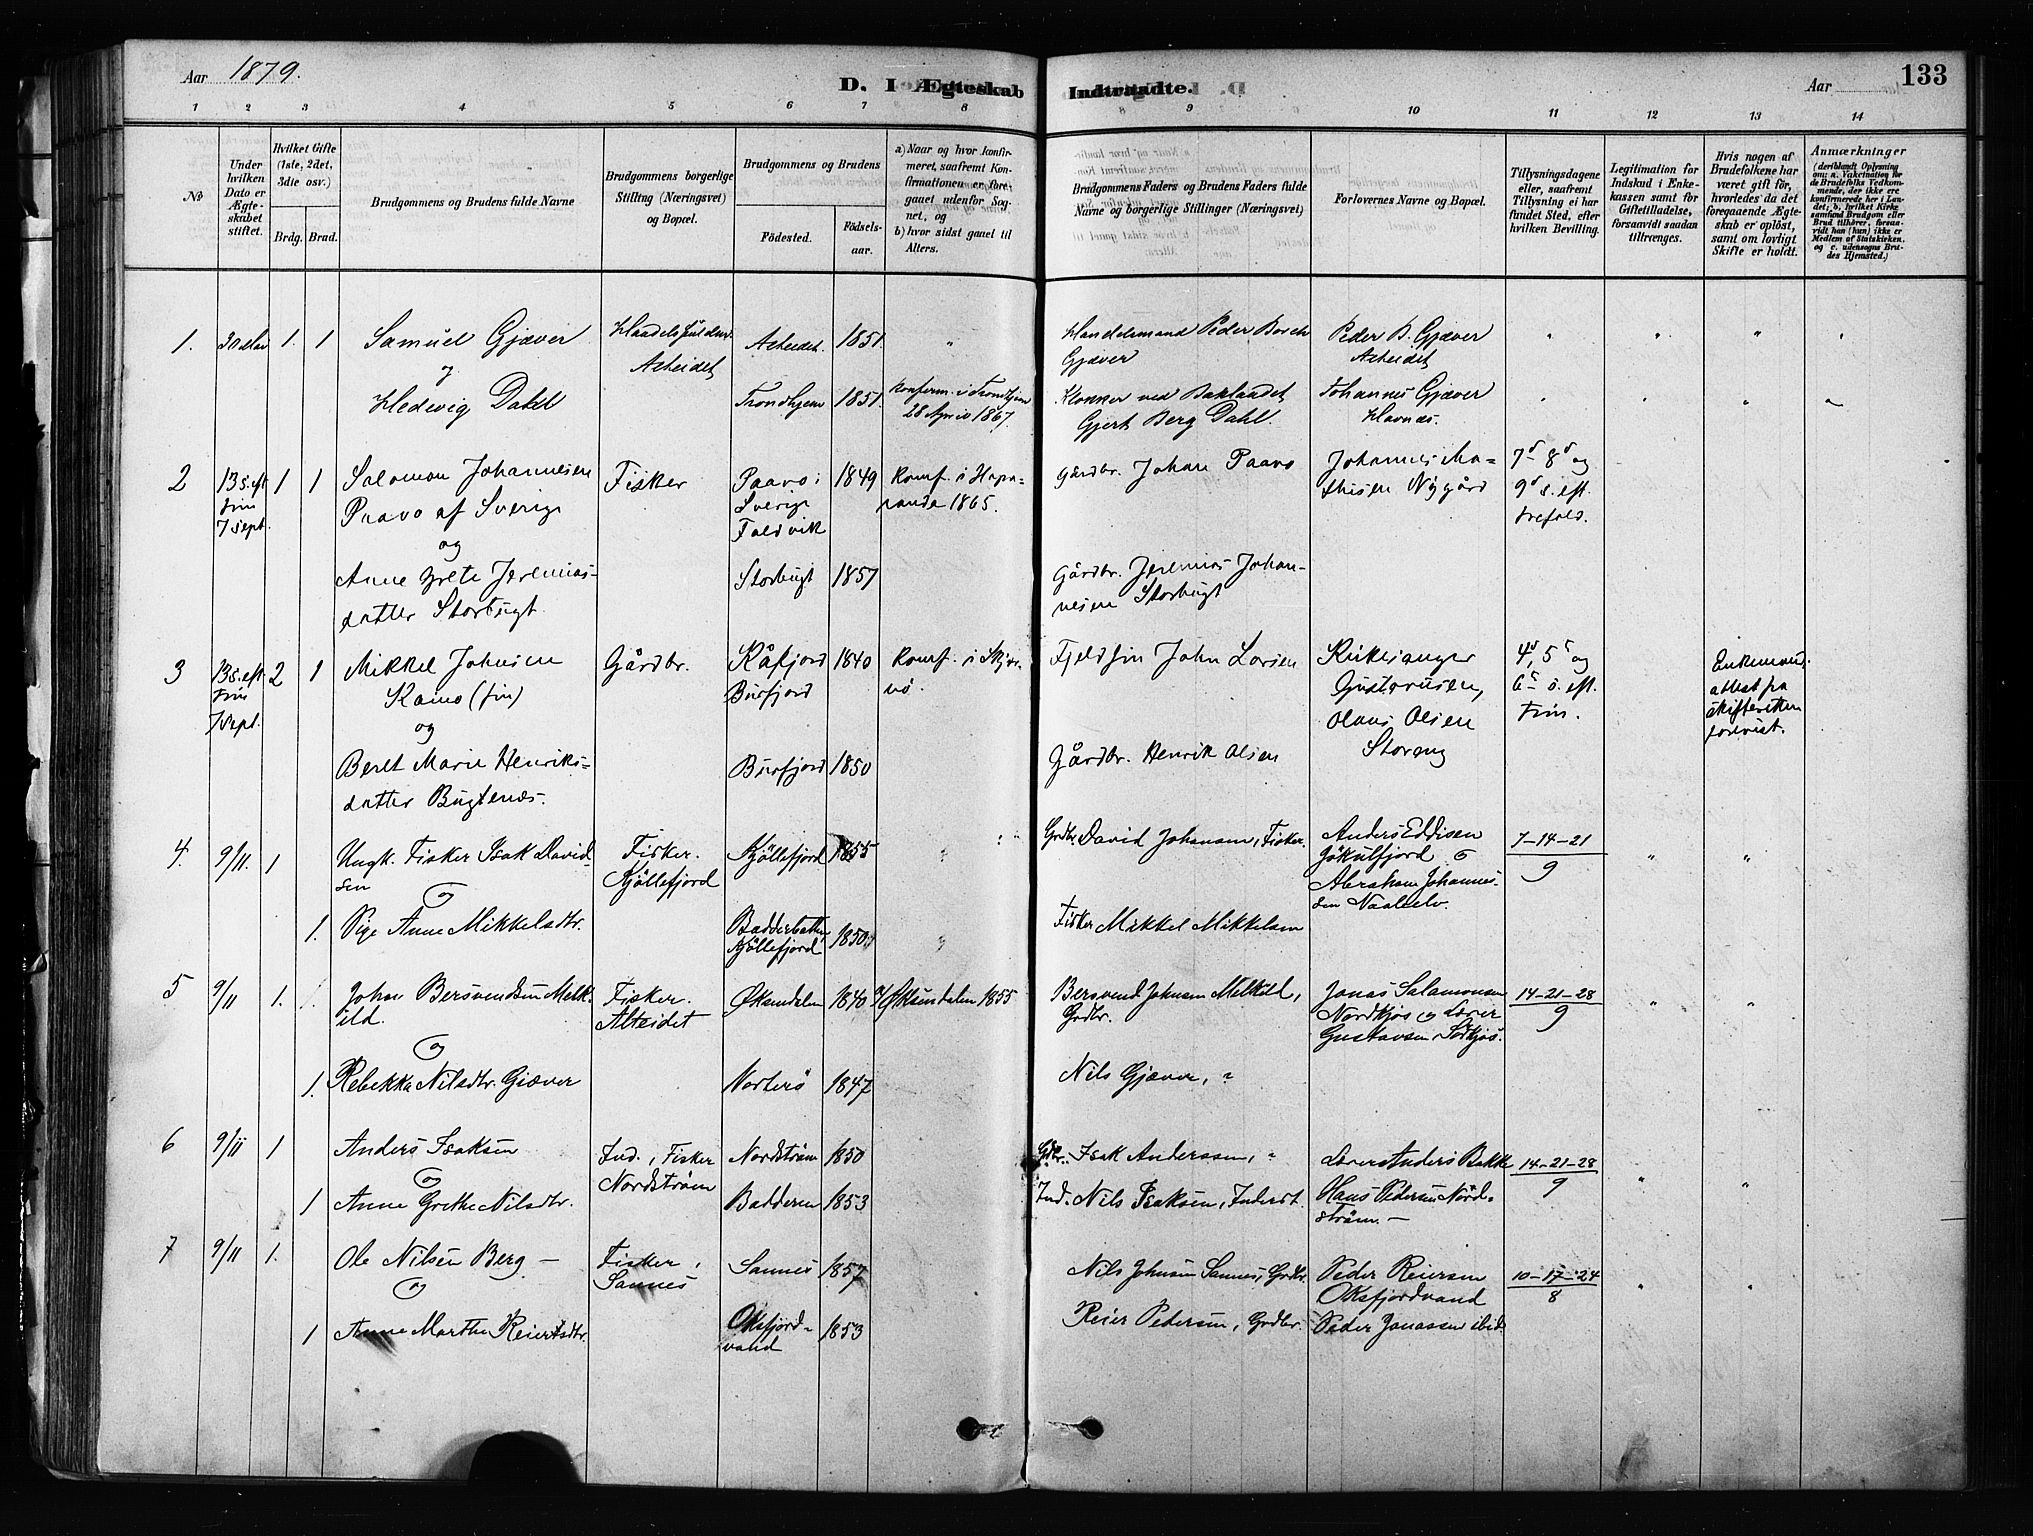 Aar 1879.
D. I Ægteskab Indtraadte.
Aar
133
1 2 3 4 5 6 7 8 9 10 11 12 13 14
No
Under hvilken Dato er Ægteskabet stiftet.
Hvilket Gifte (1ste, 2det, 3die osv.)
Brdg. Brud.
Brudgommens og Brudens fulde Navne
Brudgommens borgerlige Stilling (Næringsvei) og Bopæl.
Brudgommens og Brudens
Födested.
Födselsaar.
a) Naar og hvor konfirmeret, saafremt Konfirmationen er foregaaet udenfor Sognet, og
b) hvor sidst gaaet til Alters.
Brudgommens Faders og Brudens Faders fulde Navne og borgerlige Stillinger (Næringsvei)
Forlovernes Navne og Bopæl.
Tillysningsdagene eller, saafremt Tillysning ei har fundet Sted, efter hvilken Bevilling.
Legitimation for Indskud i Enkekassen samt for Giftetilladelse, forsaavidt saadan tiltrænges.
Hvis nogen af Brudefolkene har været gift för, hvorledes da det foregaaende Ægteskab er oplöst, samt om lovligt Skifte er holdt.
Anmærkninger
(deriblandt Oplysning om: a. Vakcination for de Brudefolks Vedkommende, der ikke ere konfirmerede her i Landet; b. hvilket Kirkesamfund Brudgom eller Brud tilhörer, forsaavidt han (hun) ikke er Medlem af Statskirken. og c. udensogns Brudes Hjemsted.)
1. 1. 1 Samuel Gjæver Asheidet. 1851. Handelsmand Peder Borch Gjæver Peder B. Gjæver
Asheidet
og
Hedevig Dahl Trondhjem 1851. Konfirm. i Trondhjem 28 April 1867. Klokker ved Baklandet Gjert Berg Dahl. Johannes Gjæver Havnæs.
2 13 s. eft. trin 7 sept. 1 1 Salomon Johannesen Fisker Paavo i 1849 Konf. i Haparanda 1865. Gårdbr. Johan Paavo Johannes Mathisen Nygård 7de 8de og 9de s. eft. trefold.
Paavo af Sverige Sverige
Faldvik
og
Anne Grete Jeremiasdatter Storbugt. Storbugt 1857 Gårdbr. Jeremias Johannesen Storbugt
3 13 s. eft. trin 7 sept. 2 1 Mikkel Johnsen Gårdbr. Kåfjord 1840 Konf. i Skjervö. Fjeldfin John Larsen Kirkesanger Gustavusen, 4de, 5te og 6te s. eft. trin. Enkemand. attest fra skifteretten forevist.
(fin) Burfjord
og
Olaus Olsen Storeng
Beret Marie Henriksdatter Bugtenes. Burfjord 1850 Gårdbr. Henrik Olsen
4. 9/11. 1 Ungk. Fisker Isak Davidsen Fisker. Kjöllefjord Kjöllefjord 1855 Grdbr. David Johansen, Fisker. Anders Eddisen Jökulfjord & 7-14-21/9
og Abraham Johannessen
1. Pige Anne Mikkelsdtr. Kjöllefjord 1850. Fisker Mikkel Mikkelsen
5 9/11 1. Johan Bersvendsen Melkild. Fisker. Alteidet Øksendalen 1840 Øksendalen 1855 Bersvend Johnsen Melkild, Grdbr. Jonas Salamonsen Nordkjos og Lærer Gustavsen, Sörkjos. 14-21-28/9
og
1. Rebekka Nilsdtr. Giæver 1847 Nils Gjæver, "
6 9/11 1 Anders Isaksen Ind., Fisker Nordström Nordström 1850 Grdbr. Isak Anderssen, " Lærer Anders Bakke 14-21-28/9
og
1 Anne Grethe Nilsdtr. Badderen 1853 Ind. Nils Isaksen, Inderst. Hans Pedersen Nordström. –
7 9/11 1. Ole Nilsen Berg – Fisker, Sannes Sannes 1857 Nils Johnsen Sannes, Grdbr. Peder Reiersen Oksfjordvand 10-17-24/8
og
1 Anne Marthe Reiersdtr. Oksfjordvand 1853 Reier Pedersen, Grdbr. Peder Jonassen ibid.